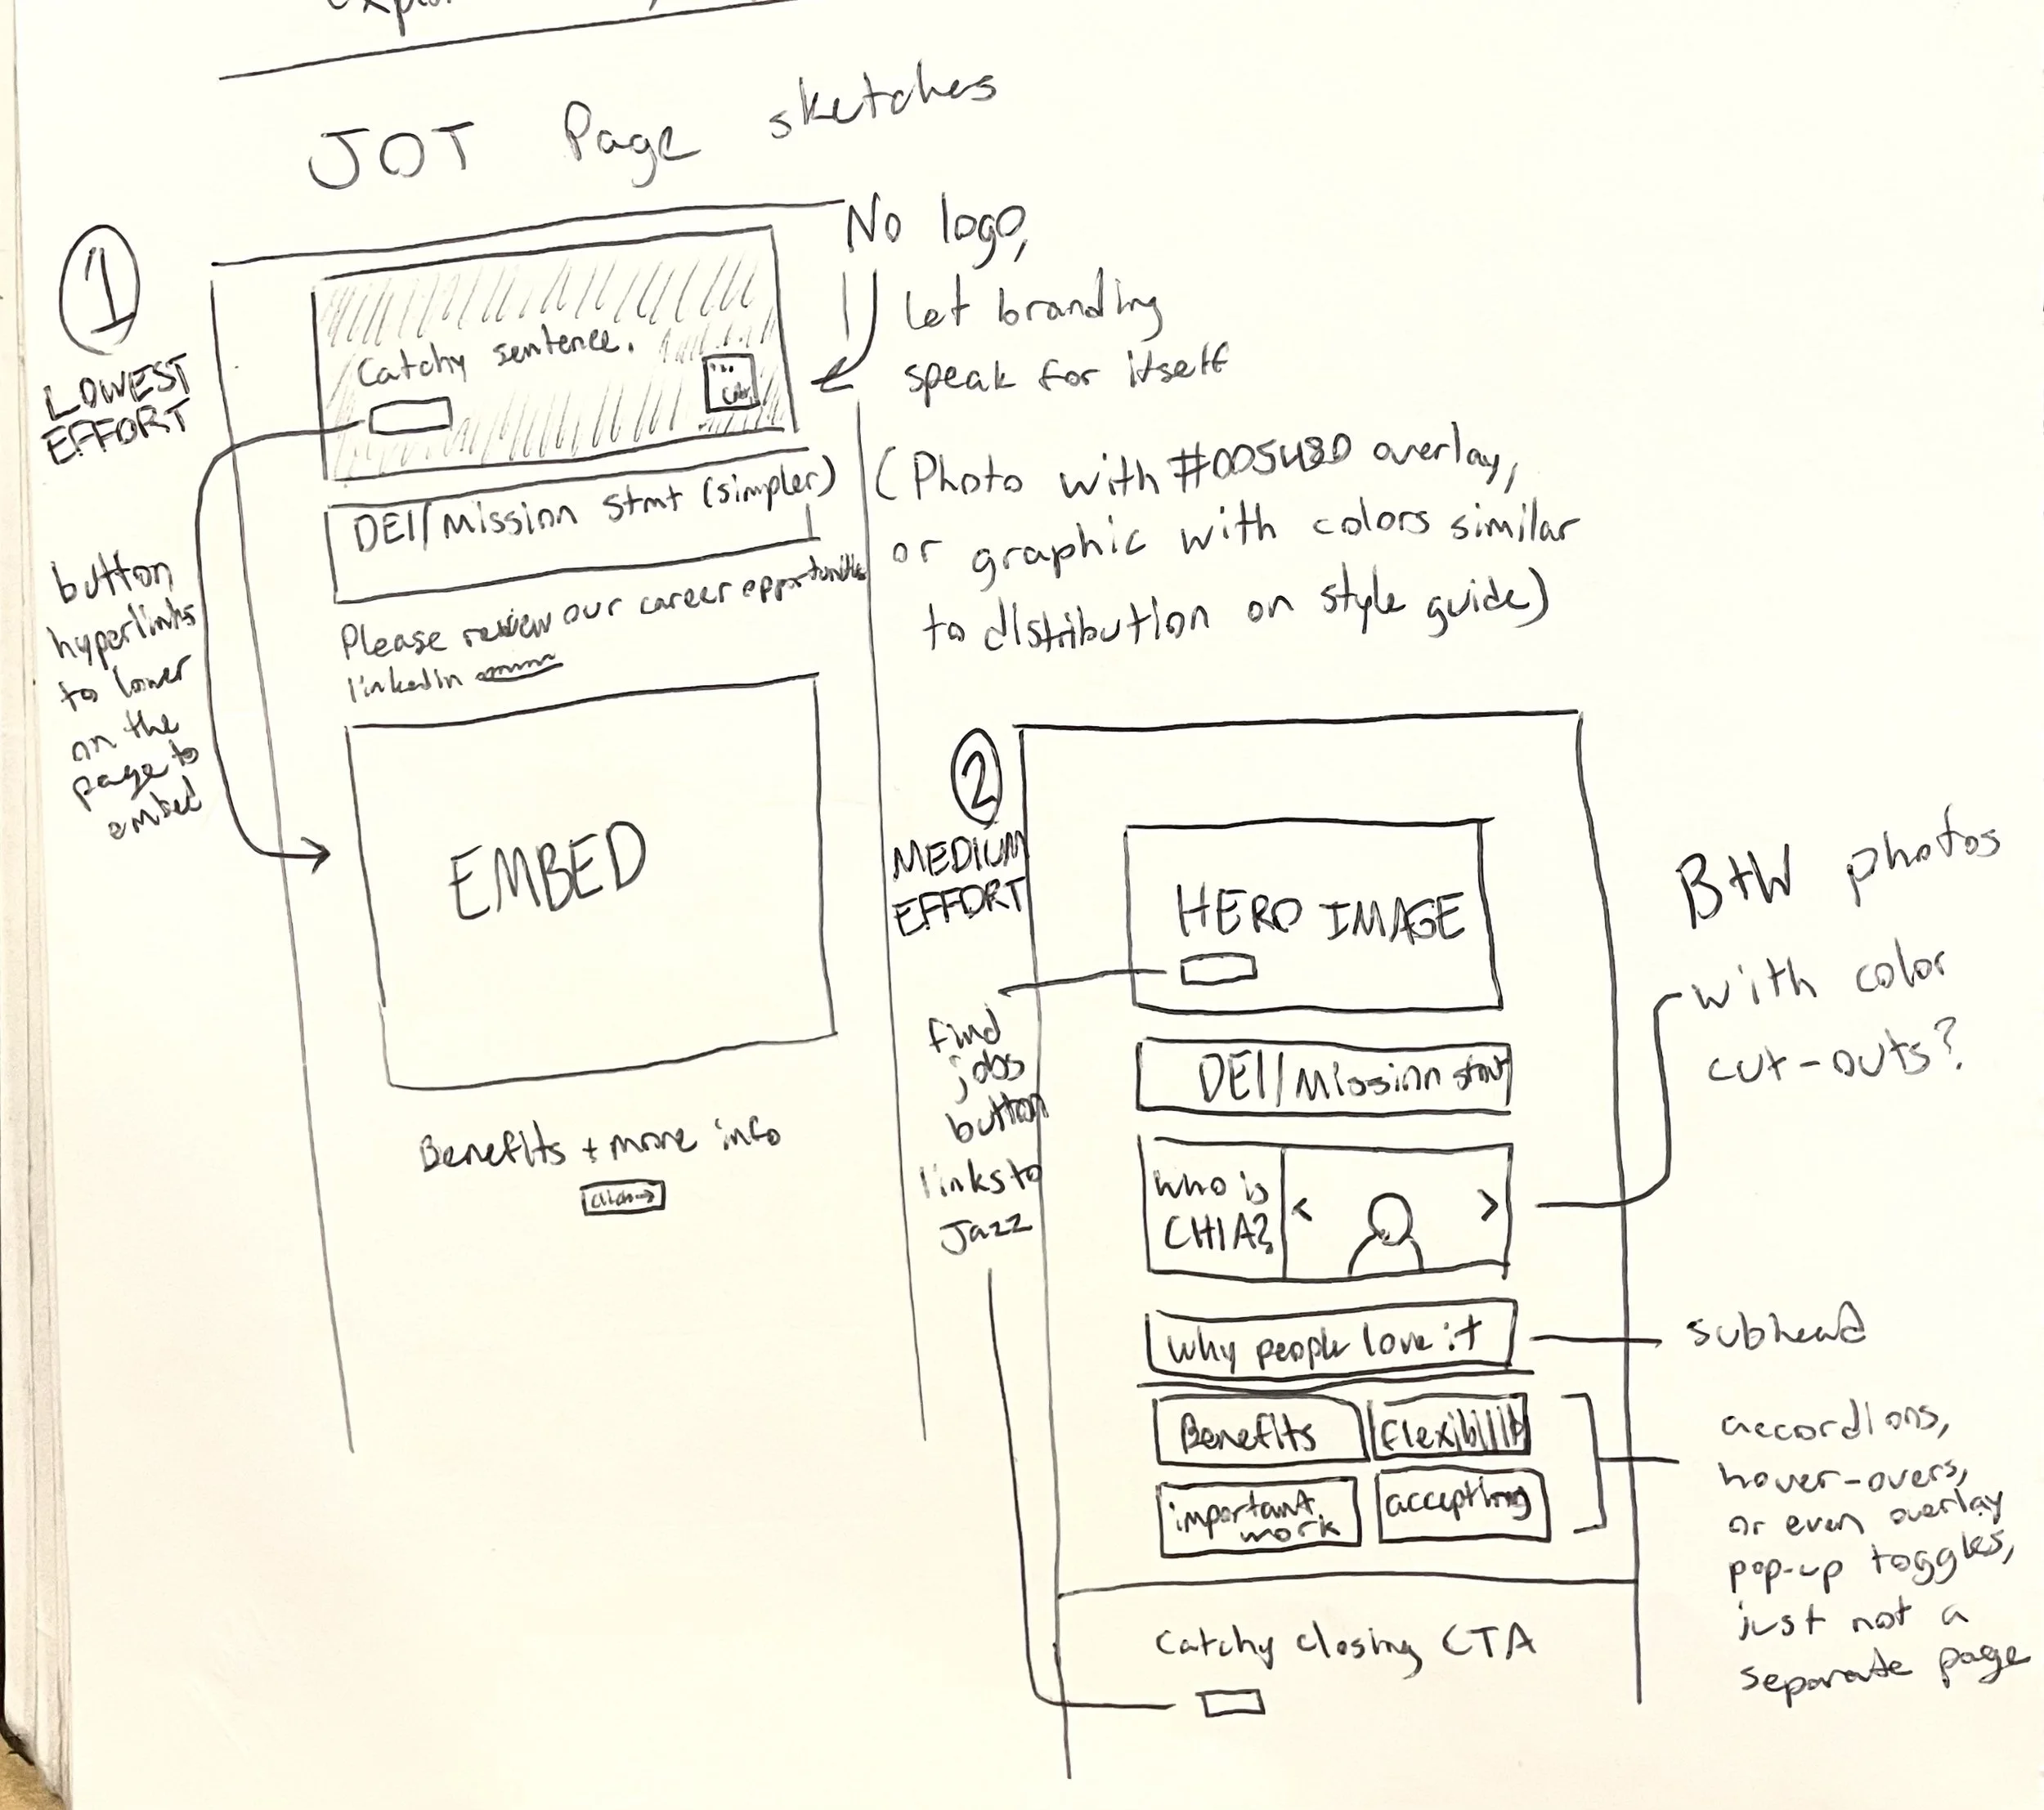 JOT Page sketches
1
LOWEST
EFFORT
No logo,
Let branding
speak for itself
(Photo with #005480 overlay,
or graphic with colors similar
to distribution on style guide)
Catchy sentence.
DEI/Mission stmt (simpler)
Please review our career opportunities
linkedin
button
hyperlinks
to lower
on the
page to
embed
EMBED
Benefits + more info
2
MEDIUM
EFFORT
HERO IMAGE
find
jobs
button
links to
Jazz
DEI/Mission stmt
who is
CHIA?
< >
B+W photos
with color
cut-outs?
why people love it
subhead
Benefits
flexibility
important
work
accepting
accordions,
hover-overs,
or even overlay
pop-up toggles,
just not a
separate page
Catchy closing CTA